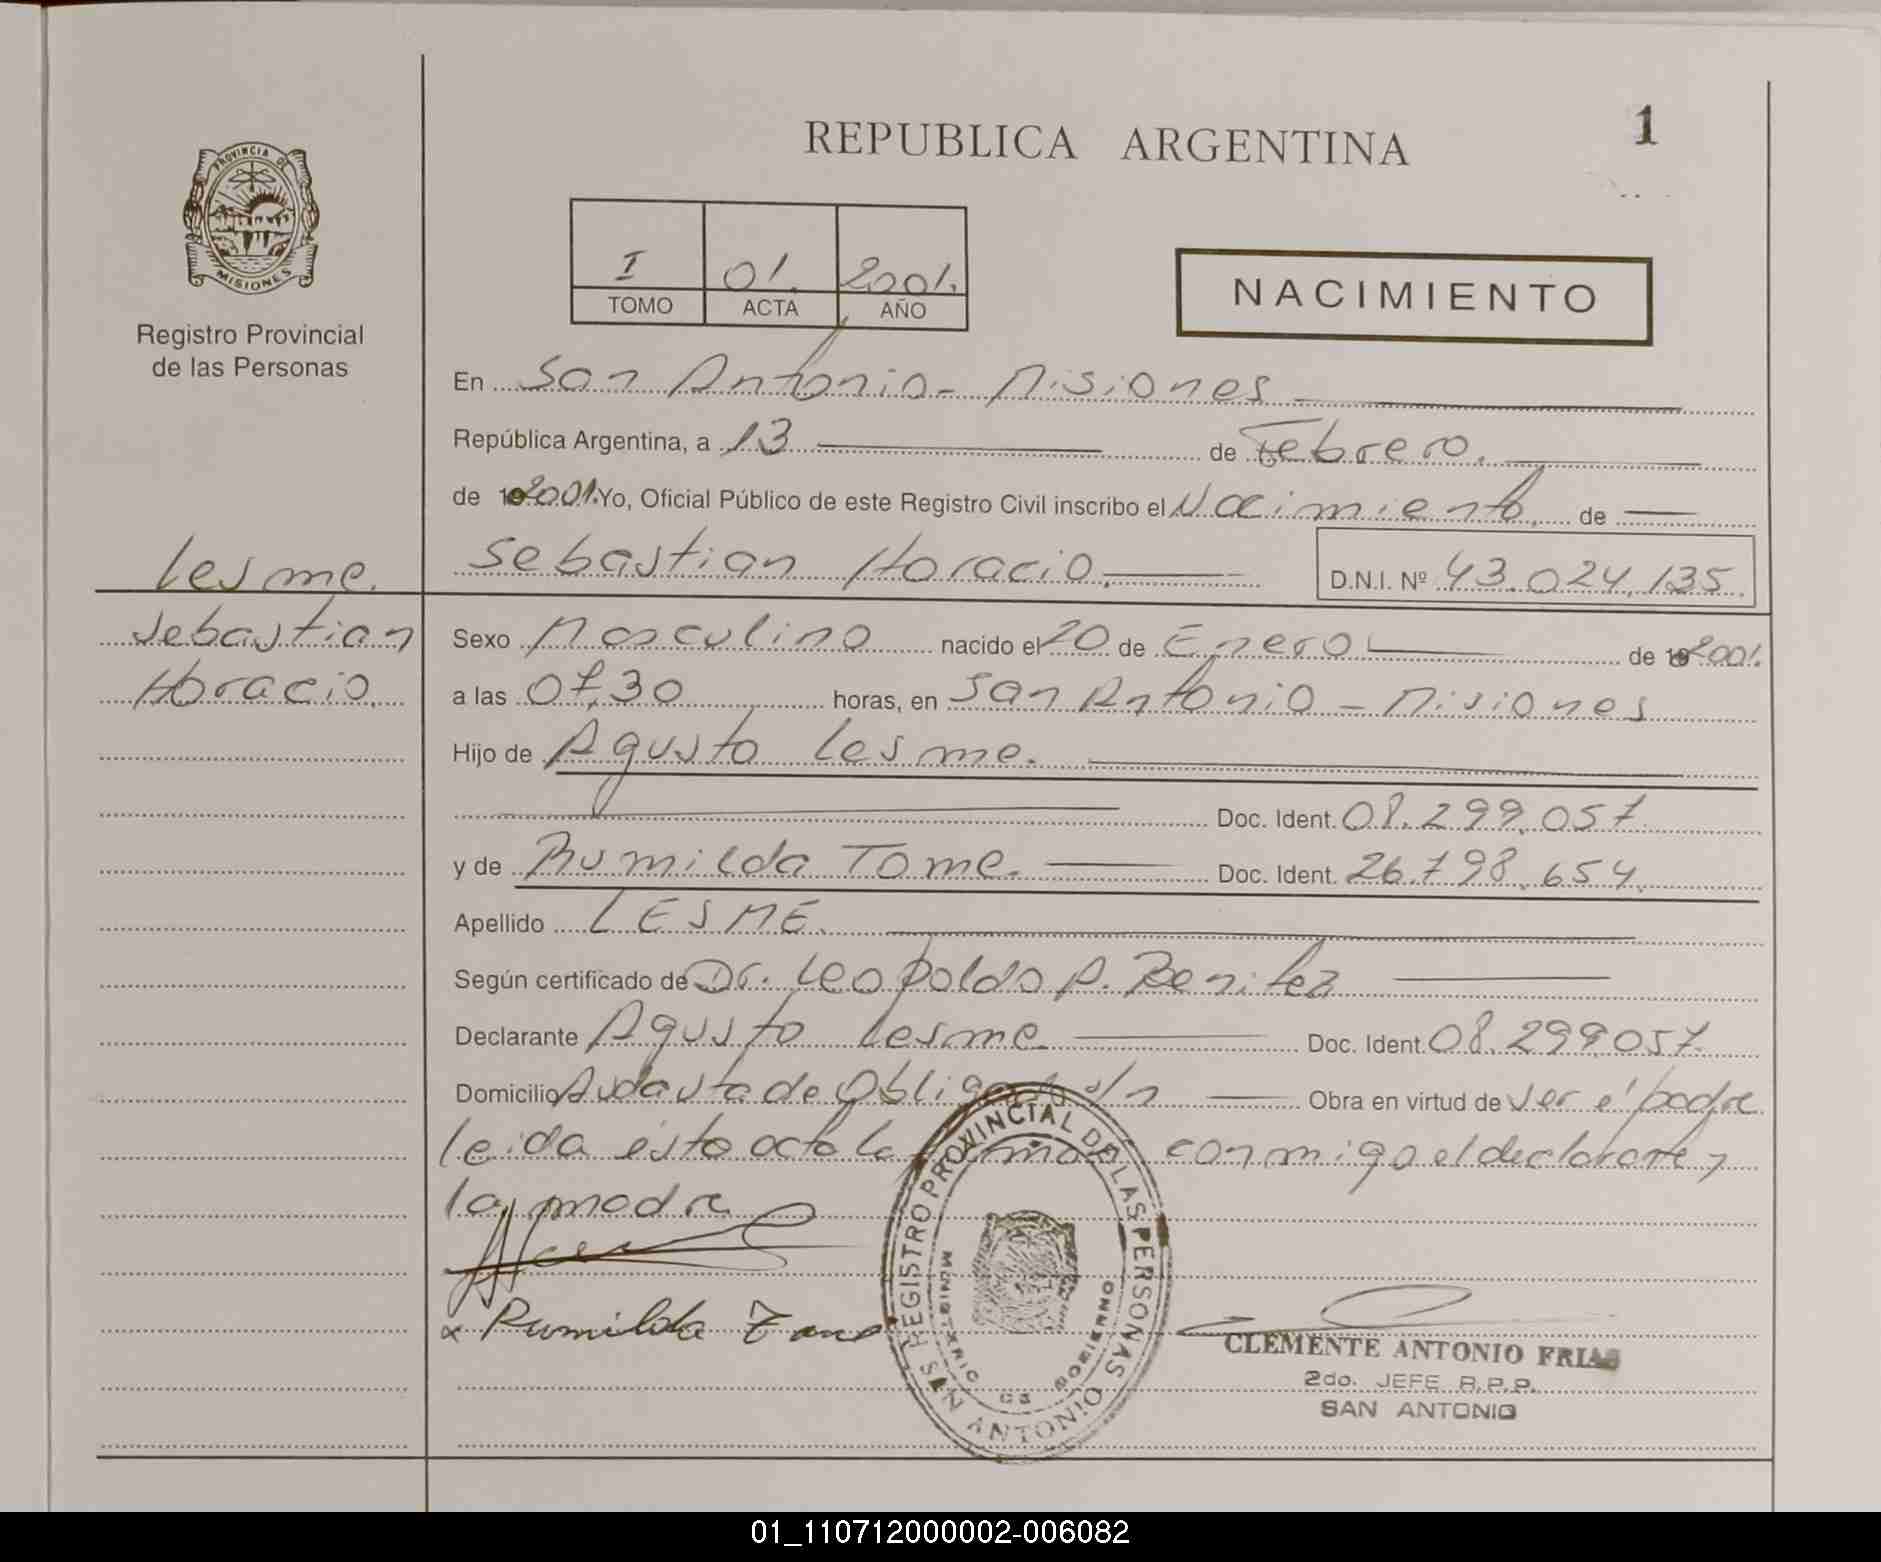 REPUBLICA ARGENTINA
1
PROVINCIA DE
MISIONES
Registro Provincial
de las Personas
I 01. 2001.
TOMO ACTA AÑO
NACIMIENTO
En San Antonio - Misiones
República Argentina, a 13 de Febrero.
de 19 2001. Yo, Oficial Público de este Registro Civil inscribo el Nacimiento, de
Lesme.
Sebastian Horacio. D.N.I. Nº 43.024.135.
Sebastian
Horacio.
Sexo Masculino nacido el 20 de Enero de 19 2001.
a las 07,30 horas, en San Antonio - Misiones
Hijo de Agusto Lesme.
Doc. Ident. 08.299.057
y de Rumilda Tome. Doc. Ident. 26.798.654.
Apellido LESME.
Según certificado de Dr. Leopoldo A. Benitez
Declarante Agusto Lesme Doc. Ident. 08.299.057.
Domicilio de Obligado s/n Obra en virtud de ser el padre
leida ésta acta la conmigo el declarante y
la madre
Rumilda Tome
REGISTRO PROVINCIAL DE LAS PERSONAS
MINISTERIO DE GOBIERNO
SAN ANTONIO
CLEMENTE ANTONIO FRIAS
2do. JEFE R.P.P.
SAN ANTONIO
01_110712000002-006082